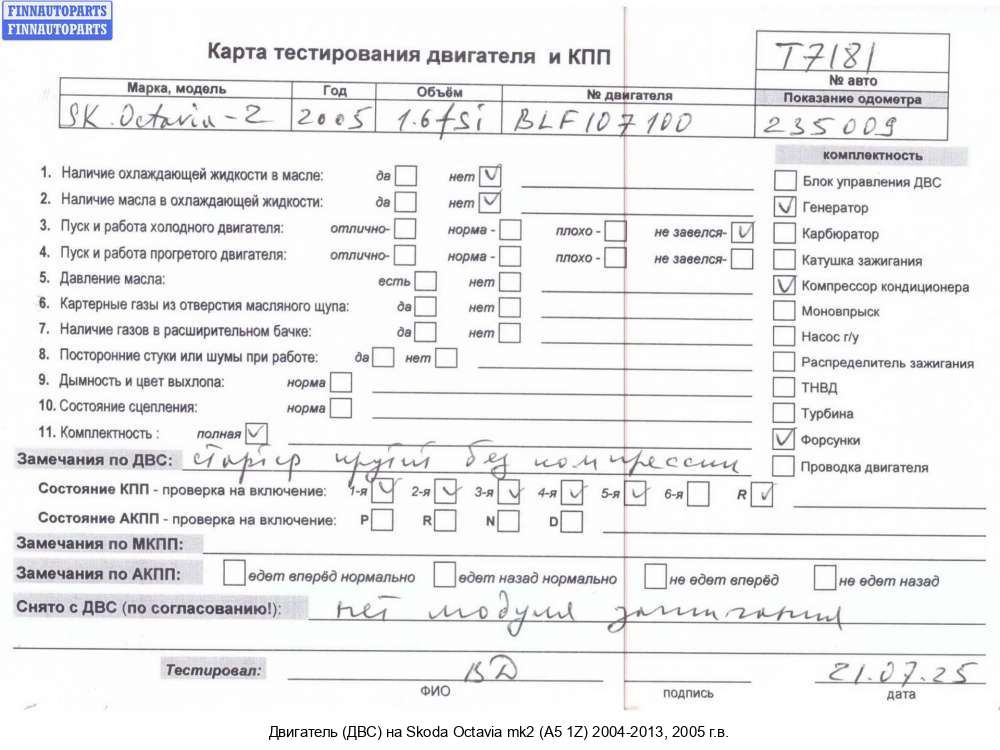 FINNAUTOPARTS
FINNAUTOPARTS
Карта тестирования двигателя и КПП
T7181
№ авто
Марка, модель Год Объём № двигателя Показание одометра
SK. Octavia-2 2005 1.6 fsi BLF107100 235009
комплектность
1. Наличие охлаждающей жидкости в масле: да нет
Блок управления ДВС
2. Наличие масла в охлаждающей жидкости: да нет
Генератор
3. Пуск и работа холодного двигателя: отлично- норма - плохо - не завелся-
Карбюратор
4. Пуск и работа прогретого двигателя: отлично- норма - плохо - не завелся-
Катушка зажигания
5. Давление масла: есть нет
Компрессор кондиционера
6. Картерные газы из отверстия масляного щупа: да нет
Моновпрыск
7. Наличие газов в расширительном бачке: да нет
Насос г/у
8. Посторонние стуки или шумы при работе: да нет
Распределитель зажигания
9. Дымность и цвет выхлопа: норма
ТНВД
10. Состояние сцепления: норма
Турбина
11. Комплектность : полная
Форсунки
Замечания по ДВС: стартер крутит без компрессии
Проводка двигателя
Состояние КПП - проверка на включение: 1-я 2-я 3-я 4-я 5-я 6-я R
Состояние АКПП - проверка на включение: P R N D
Замечания по МКПП:
Замечания по АКПП: едет вперёд нормально едет назад нормально не едет вперёд не едет назад
Снято с ДВС (по согласованию!): нет модуля зажигания
Тестировал: ВД 21.07.25
ФИО подпись дата
Двигатель (ДВС) на Skoda Octavia mk2 (A5 1Z) 2004-2013, 2005 г.в.